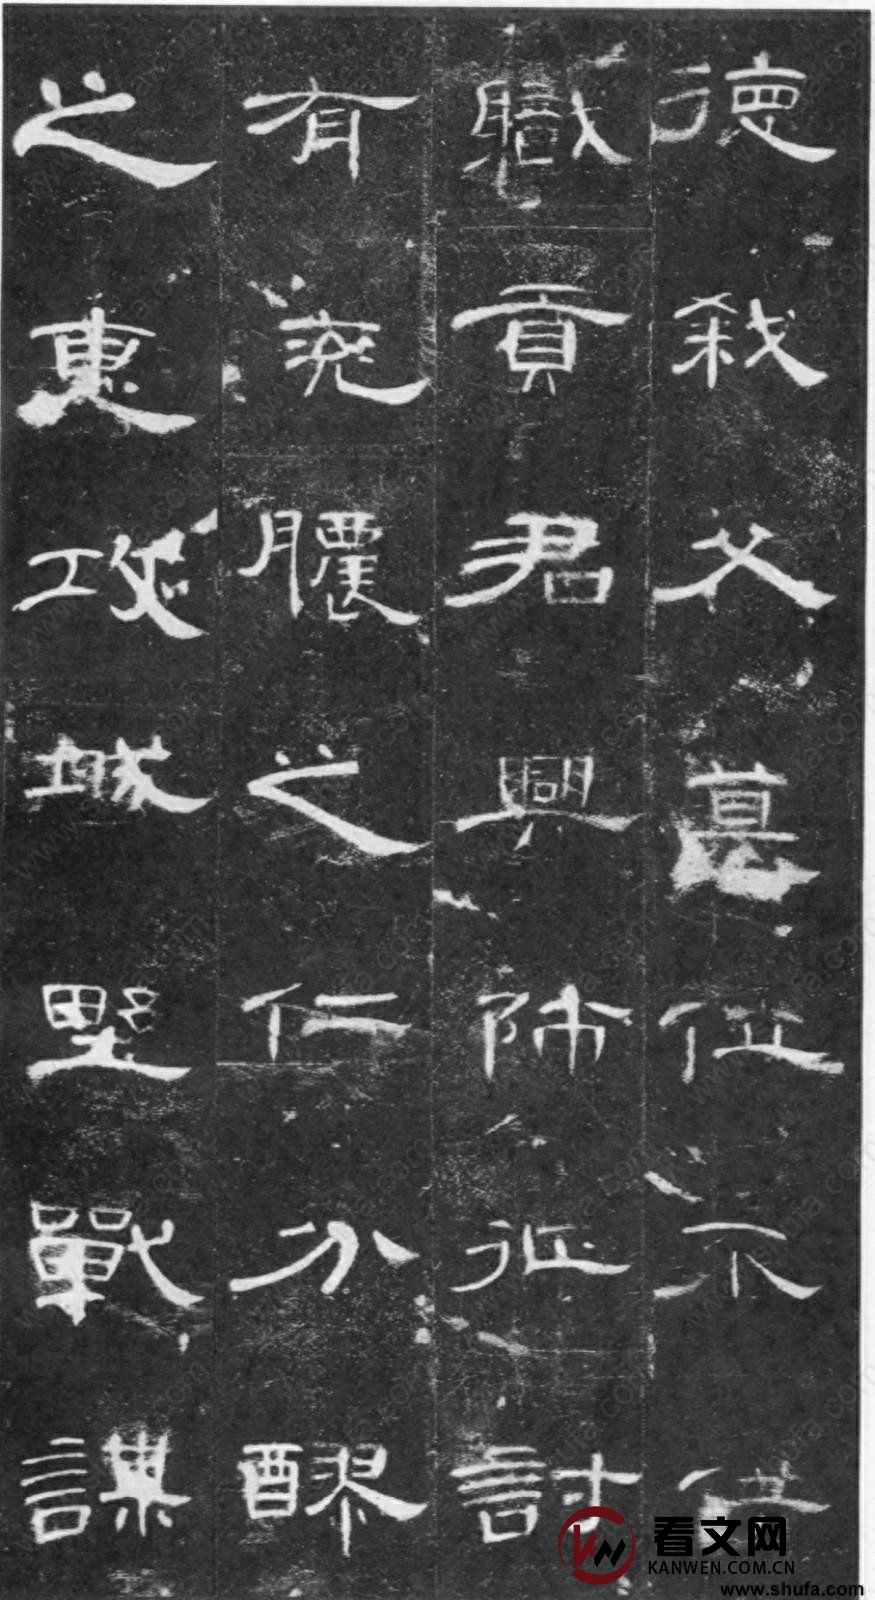 德弒父篡位不供
職貢君興師征討
有兗膿之仁分醪
之惠攻城野戰謀
看文网
KANWEN.COM.CN
www.shufa.com